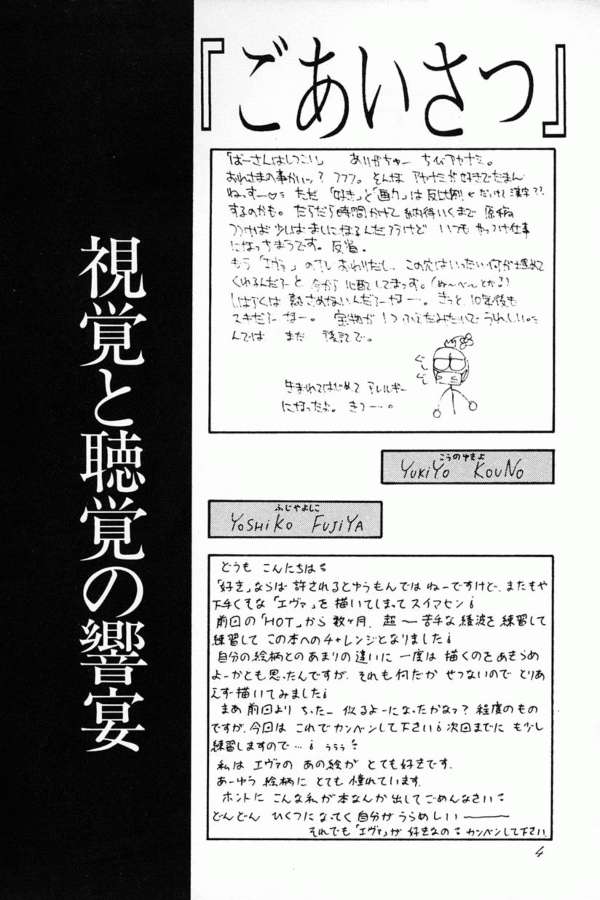 『ごあいさつ』
視覚と聴覚の響宴
「ばーさんはしつこい」 ありがちゅー ちびアヤナミ。
おれさまの事かいッ? フフフ。そんな アヤナミが好きでたまん
ねっすー ただ「好き」と「画力」は反比例
するのかも。だらだら時間かけて 納得いくまで 原稿
つけば少しはましになるんだろうけど いつも やっつけ仕事
になっちまうです。反省。
もう「エヴァ」の おわりだし、この穴はいったい何が埋めて
くれるんだろーと 今から心配してまっす。
しばらくは 熱さめないんだろーなー…。きっと 10年後も
スキだろーなー。 宝物が 1つふえたみたいで うれしい。
んでは また 後記で。
生まれてはじめて アレルギー
になったよ。きつー…。
こうのゆきよ
YUKIYO KOUNO
ふじやよしこ
YOSHIKO FUJIYA
どうも こんにちは
「好き」ならば 許されるとゆうもんでは ねーですけど、またもや
下手くそな「エヴァ」を描いてしまって スイマセン!
前回の「HOT」から 数ヶ月、超〜苦手な綾波を練習して
練習して この本へのチャレンジとなりました!
自分の絵柄とのあまりの違いに 一度は 描くのをあきらめ
よーかとも思ったんですが、それも何だか せつないので とりあ
えず描いてみました!
まあ 前回より ちったー 似るよーになったかなァ? 程度のもの
ですが、今回は これでカンベンして下さい! 次回までに もう少し
練習しますので…! ううう
私は エヴァの あの絵が とても好きです。
あーゆう 絵柄に とても 憧れています。
ホントに こんな私が本なんか出してごめんなさい
どんどん ひくつになってく 自分がうらめしい———
それでも「エヴァ」が 好きなの カンベンして下さい
4